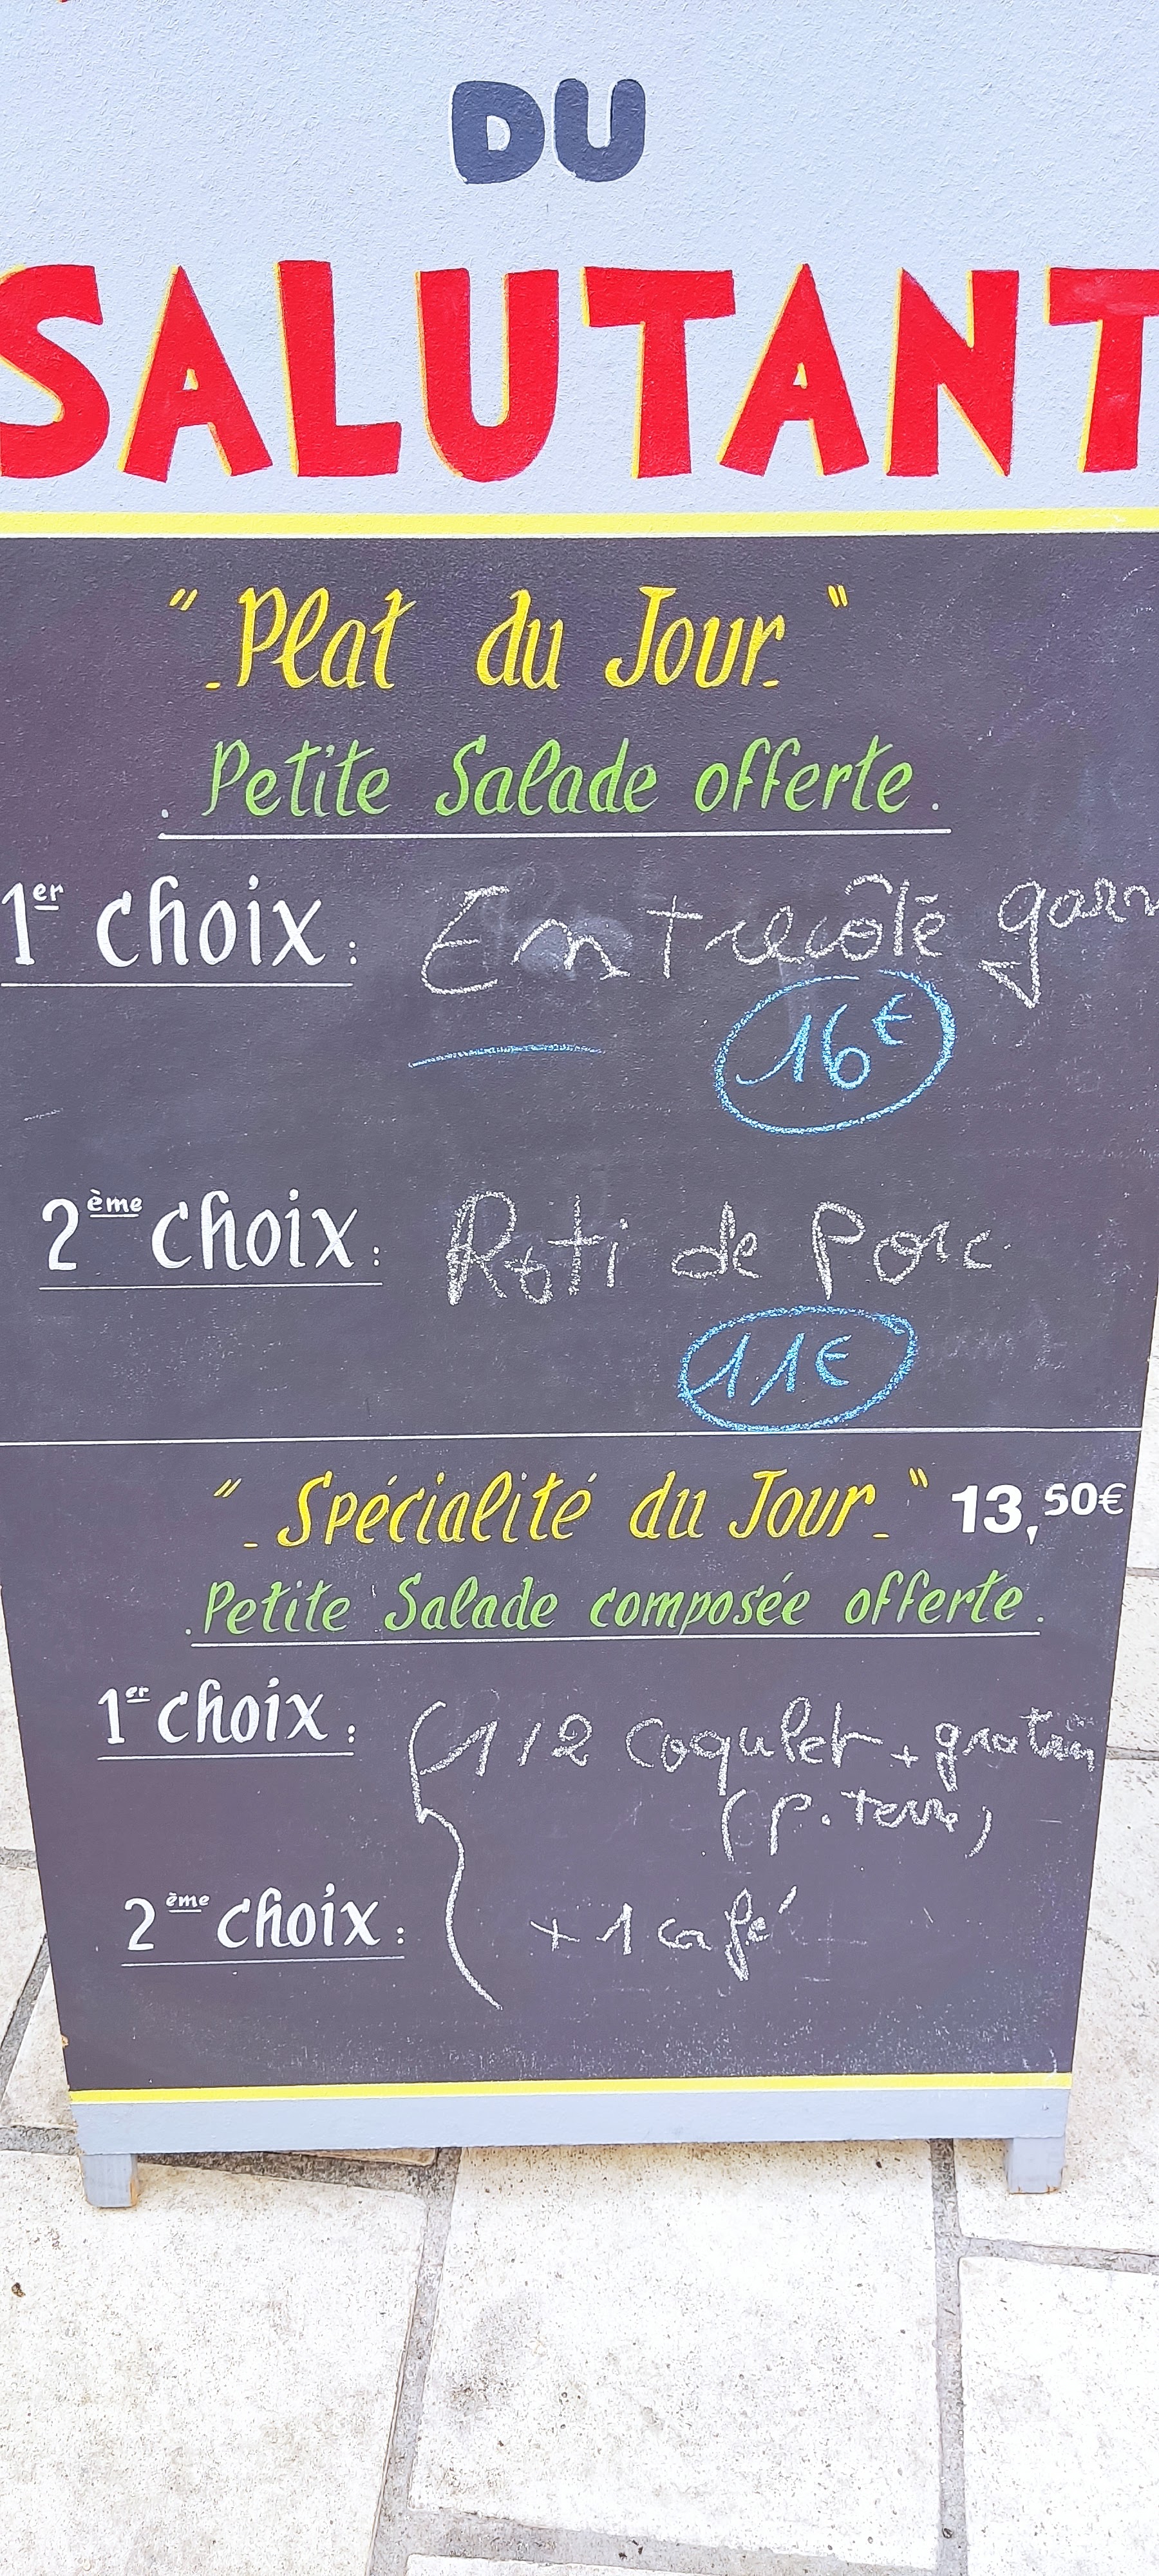 DU
SALUTANT
" - Plat du Jour - "
. Petite Salade offerte .
1er choix : Entrecôte garn
16€
2ème choix : Roti de Porc
11€
" - Spécialité du Jour - " 13,50€
. Petite Salade composée offerte .
1er choix : 1/2 Coqulet + gratin
(p. terre)
2ème choix : + 1 café